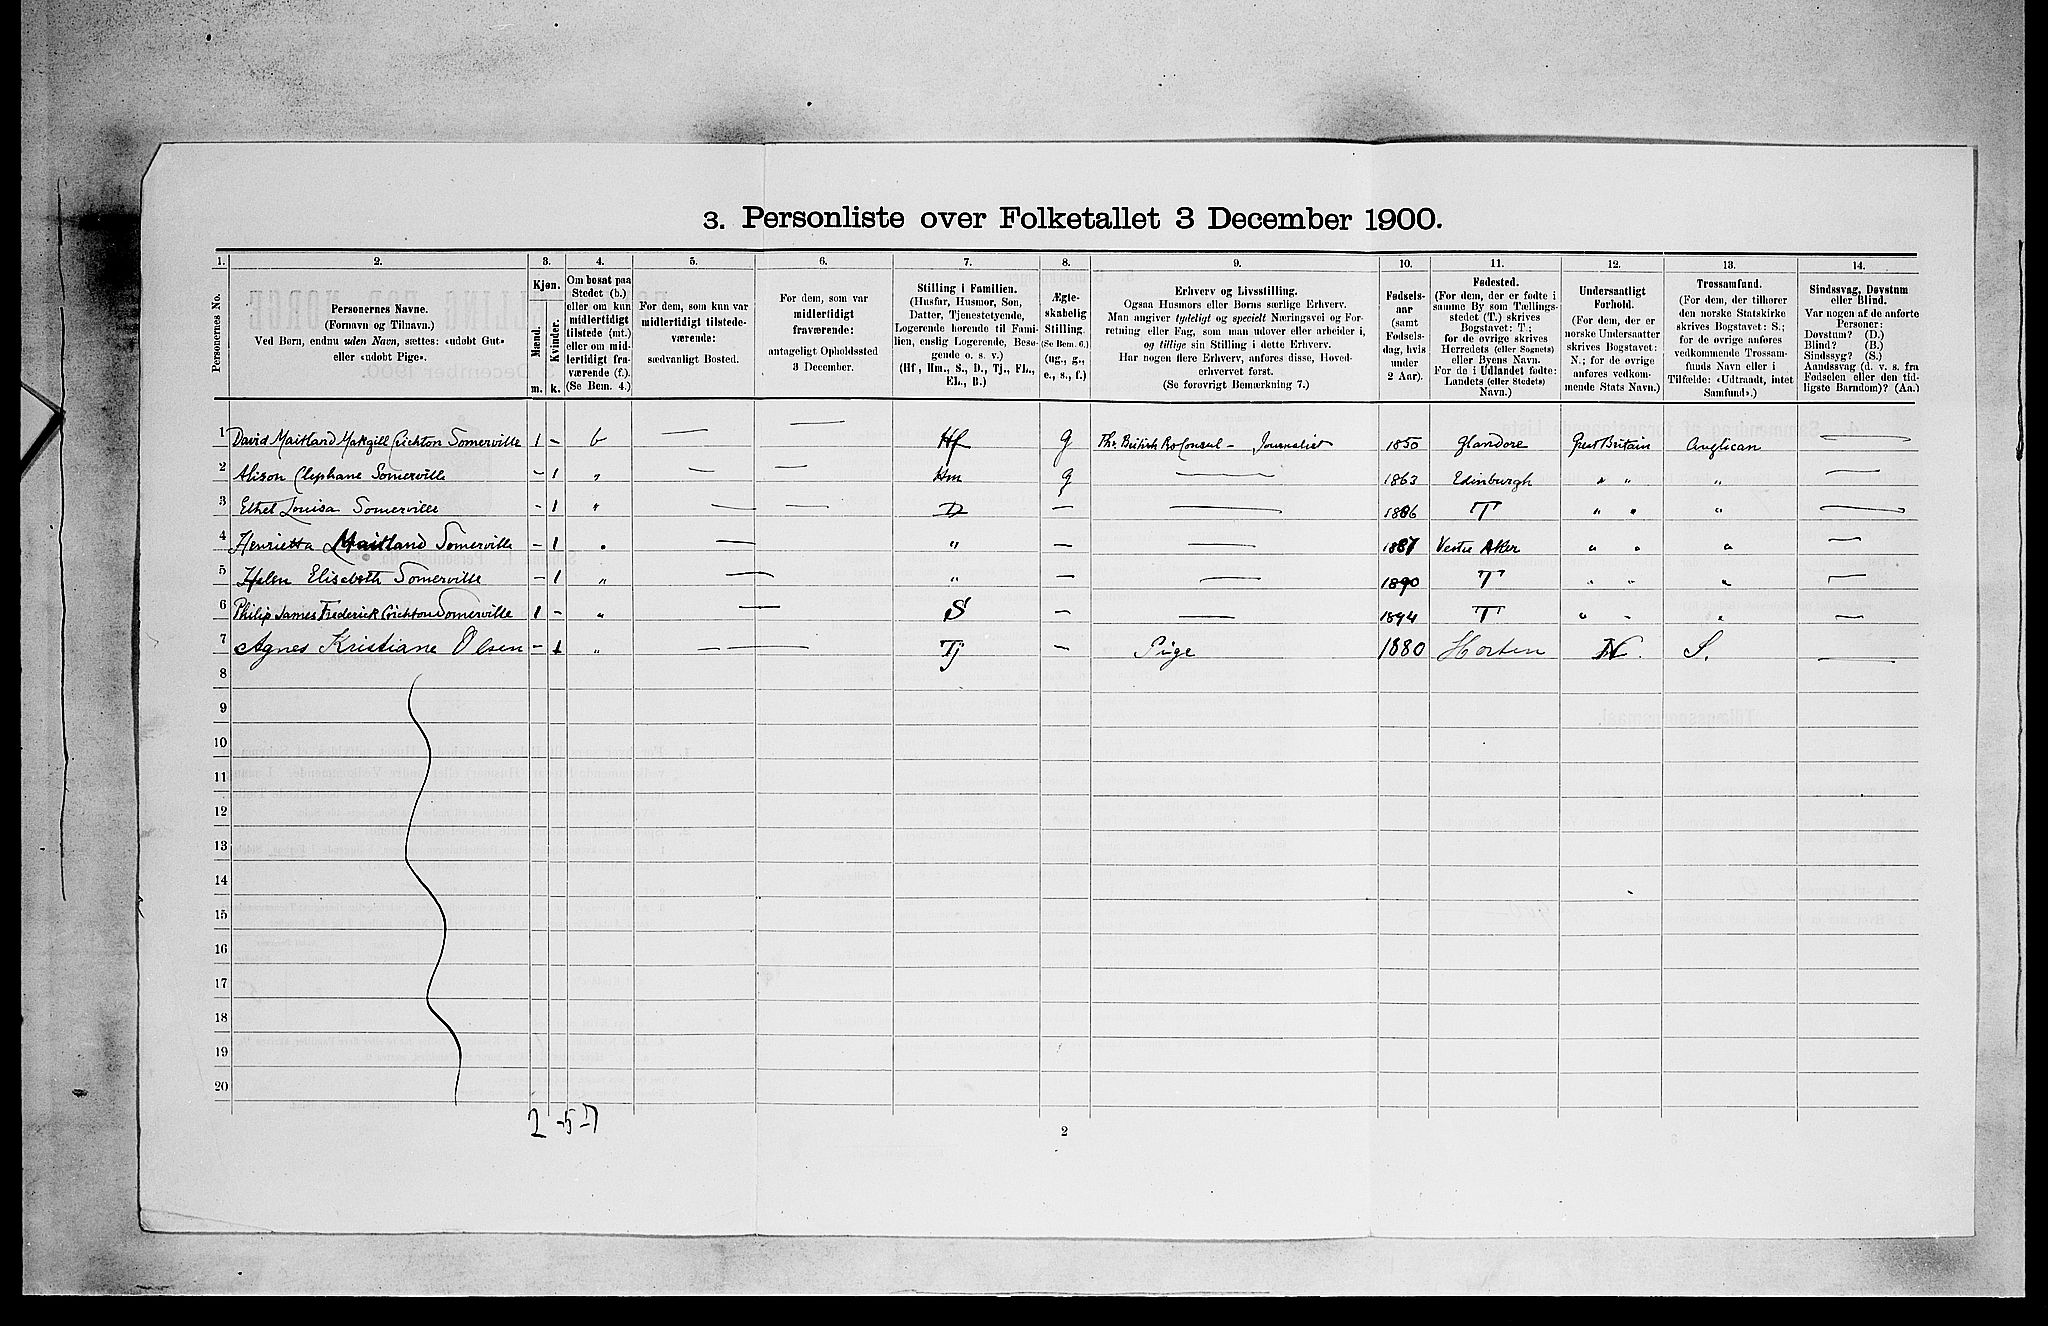 3. Personliste over Folketallet 3 December 1900.
1. 2. 3. 4. 5. 6. 7. 8. 9. 10. 11. 12. 13. 14.
Personernes No.
Personernes Navne.
(Fornavn og Tilnavn.)
Ved Børn, endnu uden Navn, sættes: «udøbt Gut»
eller «udøbt Pige».
Kjøn.
Mænd.
Kvinder.
m. k.
Om bosat paa
Stedet (b.)
eller om kun
midlertidigt
tilstede (mt.)
eller om mid-
lertidigt fra-
værende (f.).
(Se Bem. 4.)
For dem, som kun var
midlertidigt tilstede-
værende:
sædvanligt Bosted.
For dem, som var
midlertidigt
fraværende:
antageligt Opholdssted
3 December.
Stilling i Familien.
(Husfar, Husmor, Søn,
Datter, Tjenestetyende,
Logerende hørende til Fami-
lien, enslig Logerende, Besø-
gende o. s. v.)
(Hf, Hm., S., D., Tj., FL.,
EL., B.)
Ægte-
skabelig
Stilling.
(Se Bem. 6.)
(ug., g.,
e., s., f.)
Erhverv og Livsstilling.
Ogsaa Husmors eller Børns særlige Erhverv.
Man angiver tydeligt og specielt Næringsvei og For-
retning eller Fag, som man udøver eller arbeider i,
og tillige sin Stilling i dette Erhverv.
Har nogen flere Erhverv, anføres disse, Hoved-
erhvervet først.
(Se forøvrigt Bemærkning 7.)
Fødsels-
aar
(samt
Fødsels-
dag, hvis
under
2 Aar).
Fødested.
(For dem, der er fødte i
samme By som Tællings-
stedet (T.) skrives
Bogstavet: T.;
for de øvrige skrives
Herredets (eller Sognets)
eller Byens Navn.
For de i Udlandet fødte:
Landets (eller Stedets)
Navn.)
Undersaatligt
Forhold.
(For dem, der er
norske Undersaatter
skrives Bogstavet:
N.; for de øvrige
anføres vedkom-
mende Stats Navn.)
Trossamfund.
(For dem, der tilhører
den norske Statskirke
skrives Bogstavet: S.;
for de øvrige anføres
vedkommende Trossam-
funds Navn eller i
Tilfælde: «Udtraadt, intet
Samfund».)
Sindssvag, Døvstum
eller Blind.
Var nogen af de anførte
Personer:
Døvstum? (D.)
Blind? (B.)
Sindssyg? (S.)
Aandssvag (d. v. s. fra
Fødselen eller den tid-
ligste Barndom)? (Aa.)
1 David Maitland Makgill Crichton Somerville 1 – b — — Hf g British Consul – Journalist 1850 Glandore Great Britain Anglican —
2 Alison Clephane Somerville – 1 " — — Hm g — 1863 Edinburgh " " " —
3 Ethel Louisa Somerville – 1 " — — D — — 1886 T " " " —
4 Henrietta Maitland Somerville – 1 " — " — — 1887 Vestre Aker " " " —
5 Helen Elisabeth Somerville – 1 " — " — — 1890 T " " " —
6 Philip James Frederick Crichton Somerville 1 – " — S — — 1894 T " " " —
7 Agnes Kristiane Olsen – 1 " — — Tj — Pige 1880 Horten N. S. —
8
9
10
11
12
13
14
15
16
17
18
19
20
2 - 5 - 7
2